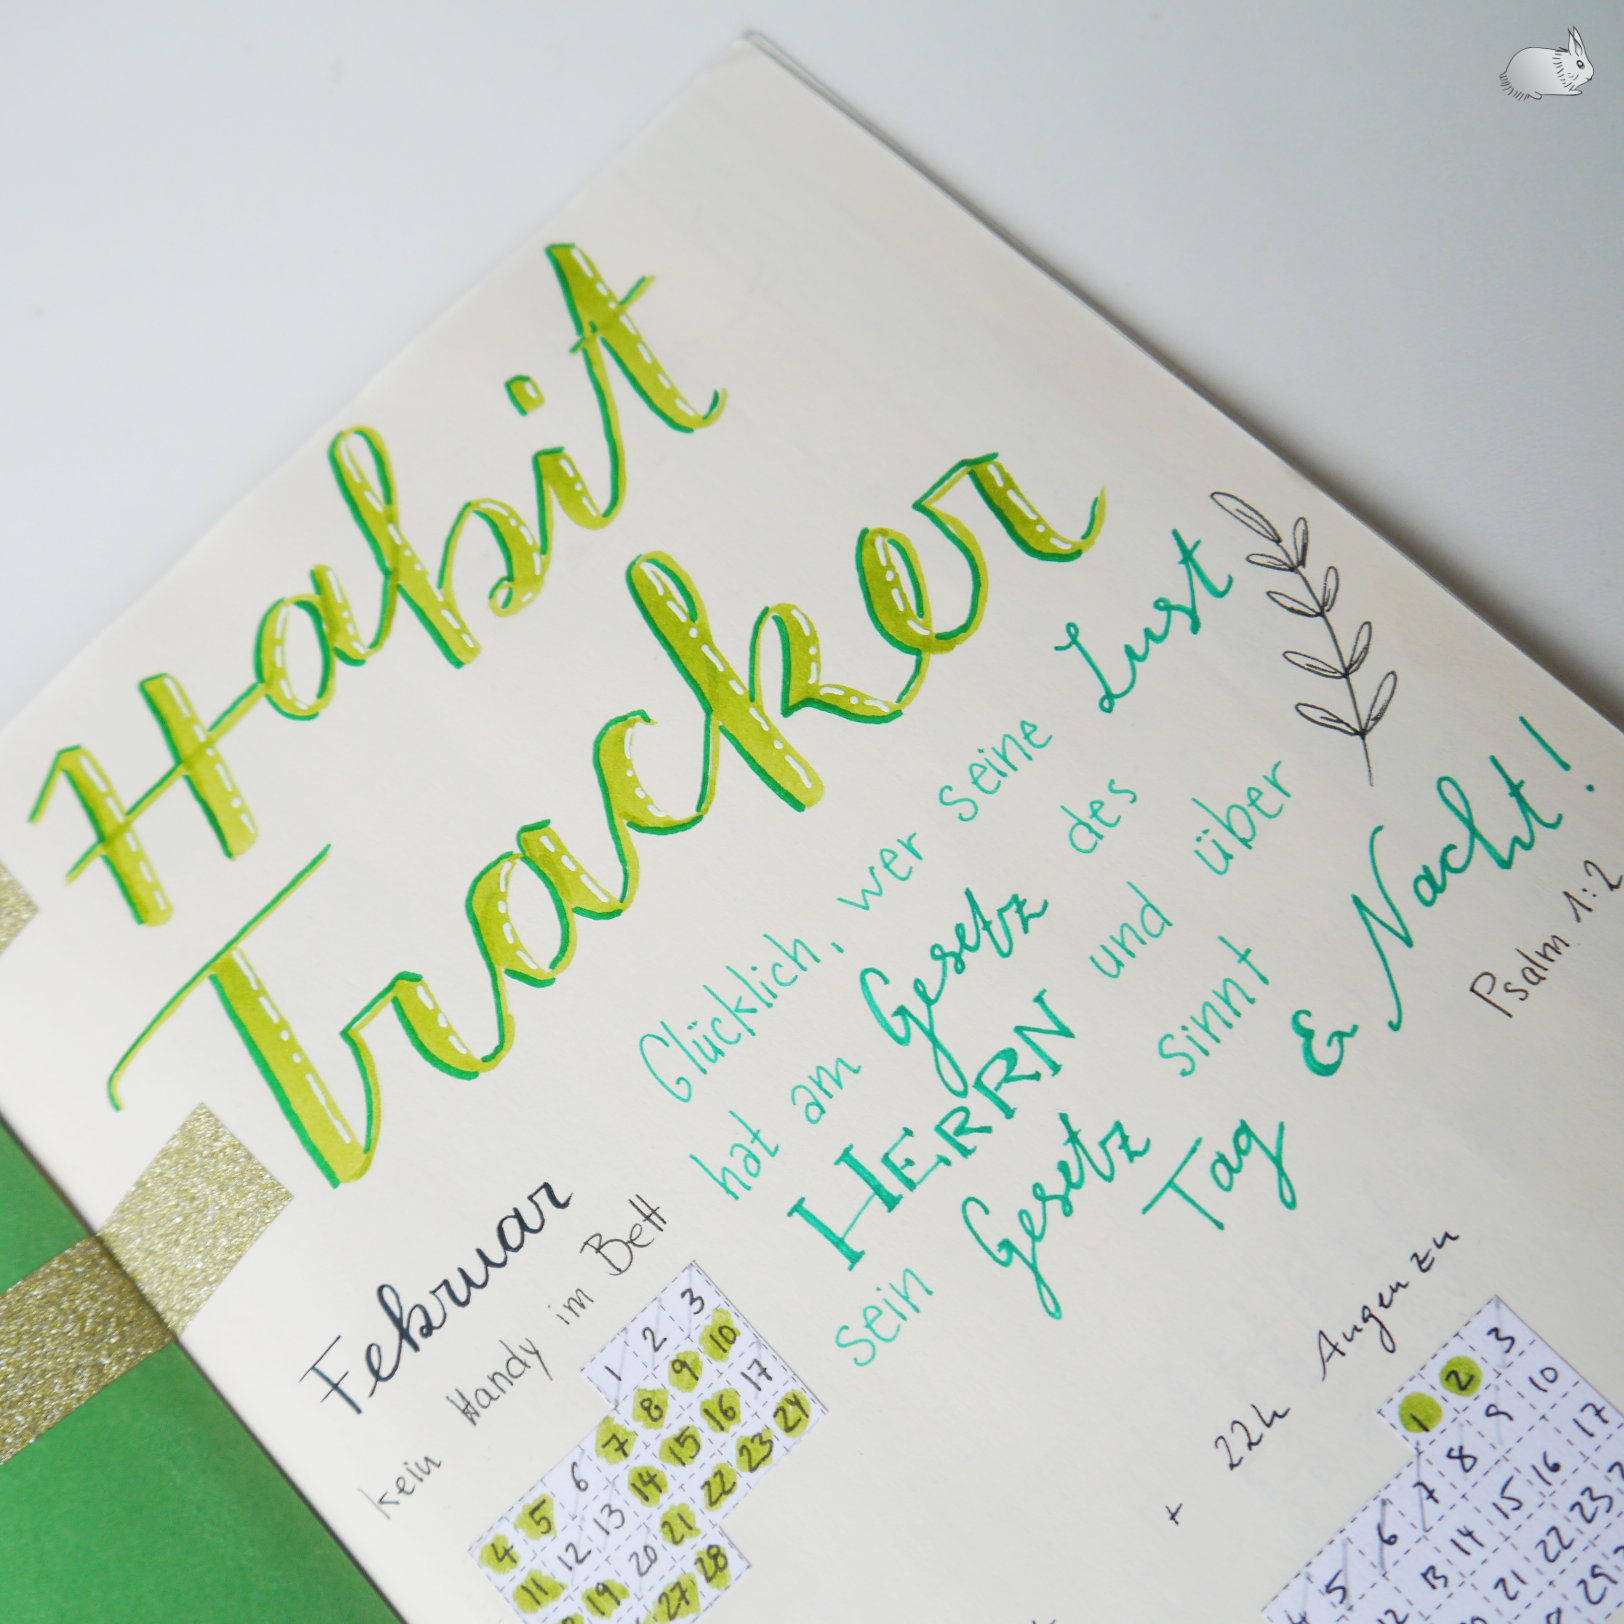 Habit
Tracker
Glücklich, wer seine Lust
hat am Gesetz des
HERRN und über
sein Gesetz sinnt
Tag & Nacht!
Psalm 1:2
Februar
kein Handy im Bett
1 2 3
4 5 6 7 8 9 10
11 12 13 14 15 16 17
19 20 21 22 23 24
27 28
+ 22h Augen zu
1 2 3
5 6 7 8 9 10
13 14 15 16 17
21 22 23
29